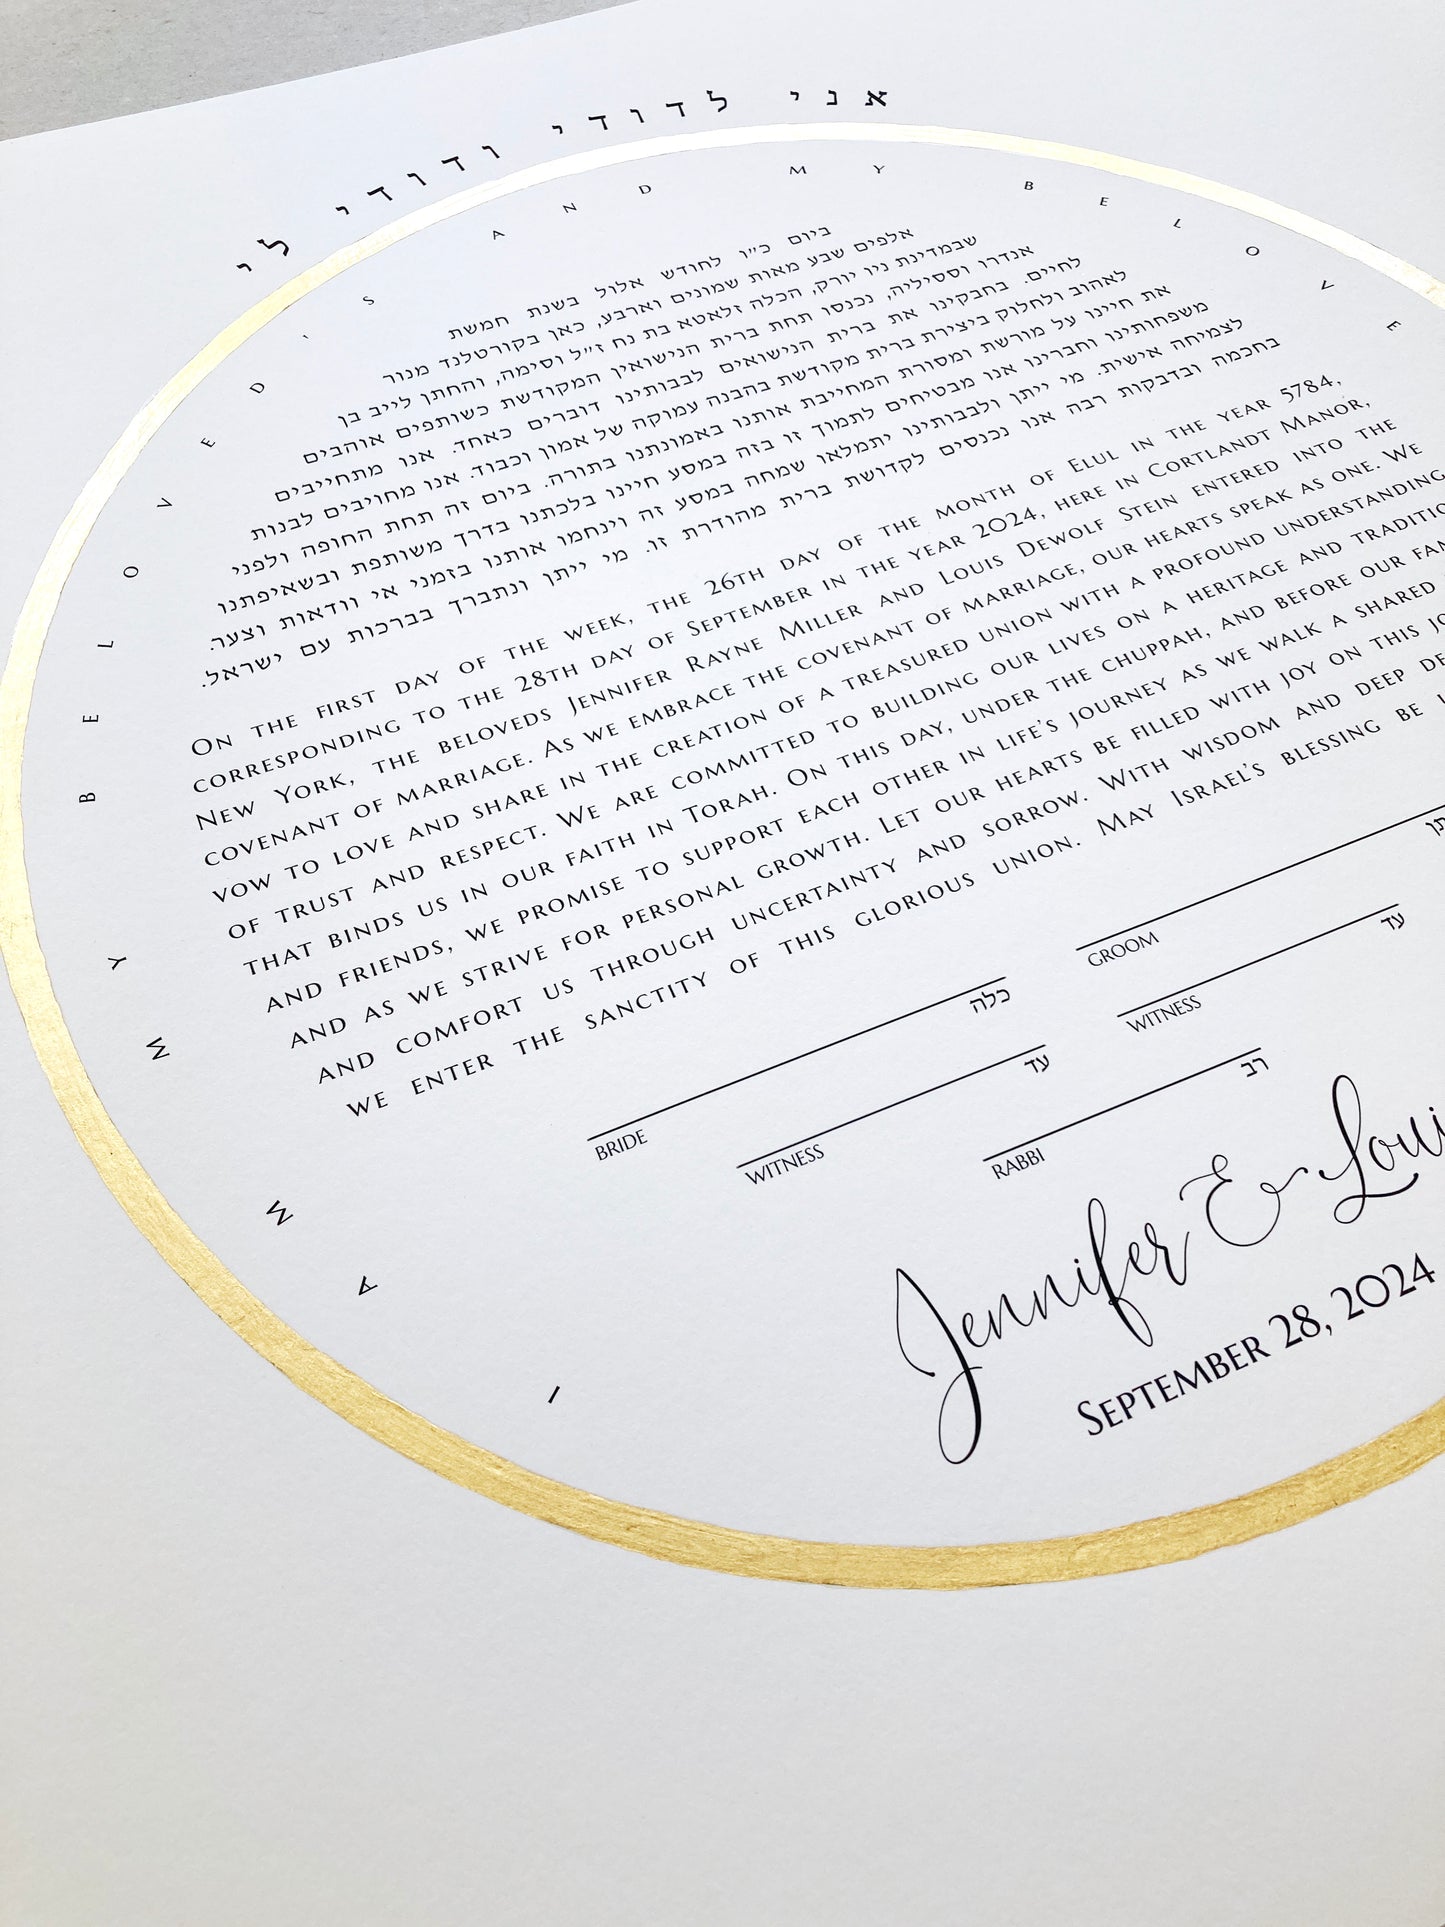 אני לדודי ודודי לי
I AM MY BELOVED'S AND MY BELOVE
ביום כ״ו לחודש אלול בשנת חמשת
אלפים שבע מאות שמונים וארבע, כאן בקורטלנד מנור
שבמדינת ניו יורק, הכלה זלאטא בת נח ז״ל וסימה, והחתן לייב בן
אנדרו וססיליה, נכנסו תחת ברית הנישואין המקודשת כשותפים אוהבים
לחיים. בחבקינו את ברית הנישואים לבבותינו דוברים כאחד. אנו מתחייבים
לאהוב ולחלוק ביצירת ברית מקודשת בהבנה עמוקה של אמון וכבוד. אנו מחויבים לבנות
את חיינו על מורשת ומסורת המחייבת אותנו באמונתנו בתורה. ביום זה תחת החופה ולפני
משפחותינו וחברינו אנו מבטיחים לתמוך זו בזה במסע חיינו בלכתנו בדרך משותפת ובשאיפתנו
לצמיחה אישית. מי ייתן ולבבותינו יתמלאו שמחה במסע זה וינחמו אותנו בזמני אי וודאות וצער.
בחכמה ובדבקות רבה אנו נכנסים לקדושת ברית מהודרת זו. מי ייתן ונתברך בברכות עם ישראל.
On the first day of the week, the 26th day of the month of Elul in the year 5784,
corresponding to the 28th day of September in the year 2024, here in Cortlandt Manor,
New York, the beloveds Jennifer Rayne Miller and Louis Dewolf Stein entered into the
covenant of marriage. As we embrace the covenant of marriage, our hearts speak as one. We
vow to love and share in the creation of a treasured union with a profound understanding
of trust and respect. We are committed to building our lives on a heritage and traditio
that binds us in our faith in Torah. On this day, under the chuppah, and before our fam
and friends, we promise to support each other in life's journey as we walk a shared
and as we strive for personal growth. Let our hearts be filled with joy on this jo
and comfort us through uncertainty and sorrow. With wisdom and deep de
we enter the sanctity of this glorious union. May Israel's blessing be
כלה
BRIDE
תן
GROOM
עד
WITNESS
עד
WITNESS
רב
RABBI
Jennifer & Loui
September 28, 2024